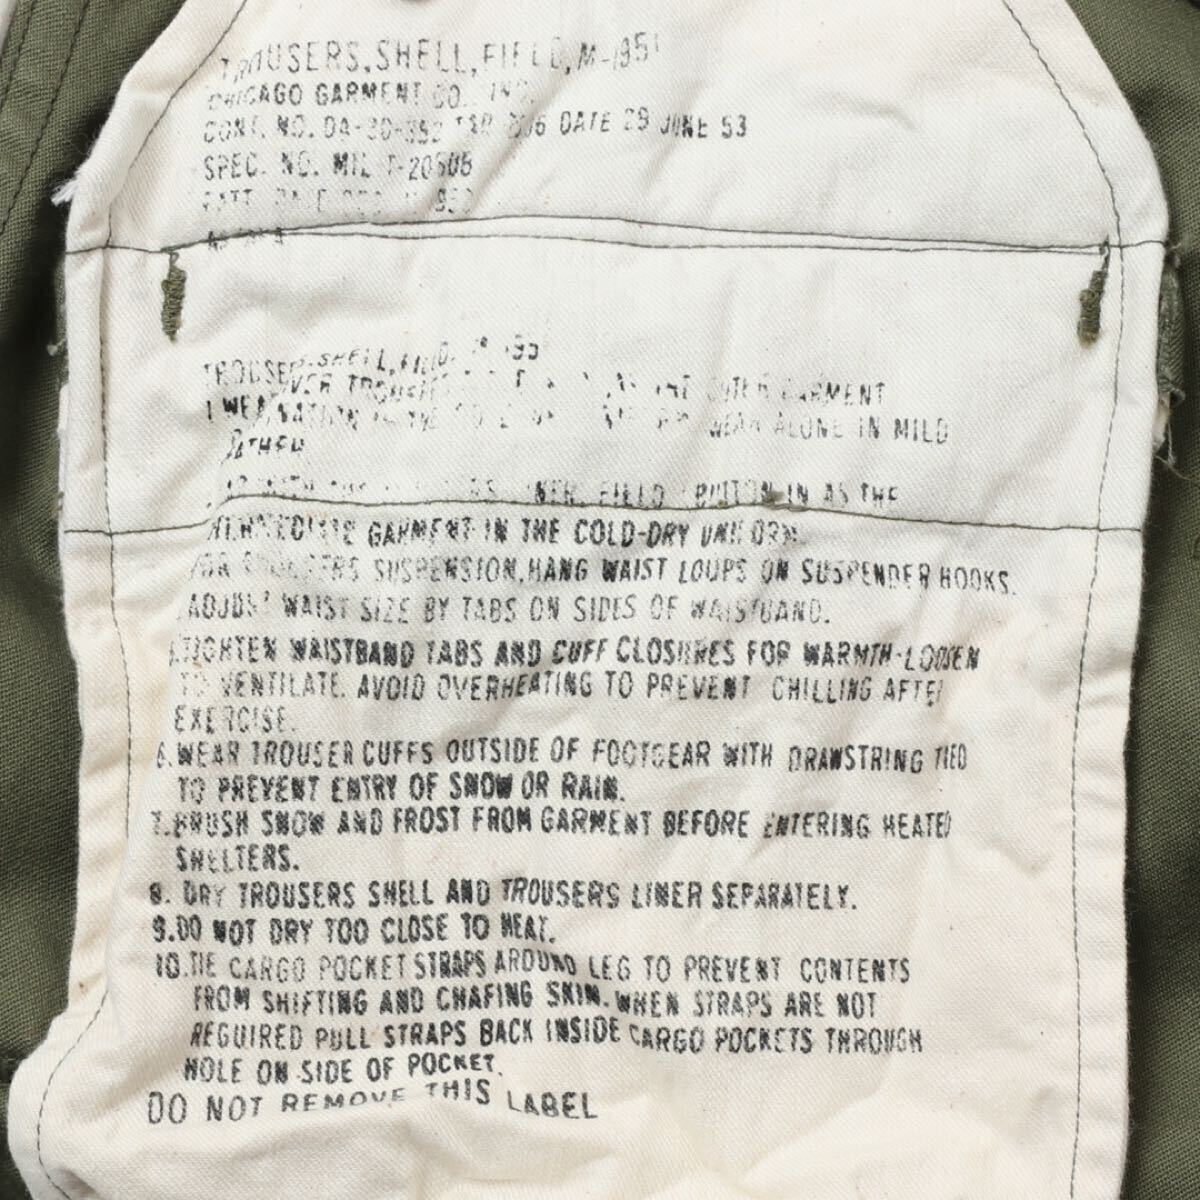 TROUSERS, SHELL, FIELD, M-1951
CHICAGO GARMENT CO., INC.
CONT. NO. DA-30-352 DATE 29 JUNE 53
SPEC. NO. MIL-T-2050B
TROUSERS, SHELL, FIELD,
OVER OUTER GARMENT
WEAR ALONE IN MILD
FIELD BUTTON IN AS THE
GARMENT IN THE COLD-DRY UNIFORM.
SUSPENSION, HANG WAIST LOUPS ON SUSPENDER HOOKS.
ADJUST WAIST SIZE BY TABS ON SIDES OF WAISTBAND.
TIGHTEN WAISTBAND TABS AND CUFF CLOSURES FOR WARMTH-LOOSEN
TO VENTILATE. AVOID OVERHEATING TO PREVENT CHILLING AFTER
EXERCISE.
6. WEAR TROUSER CUFFS OUTSIDE OF FOOTGEAR WITH DRAWSTRING TIED
TO PREVENT ENTRY OF SNOW OR RAIN.
7. BRUSH SNOW AND FROST FROM GARMENT BEFORE ENTERING HEATED
SHELTERS.
8. DRY TROUSERS SHELL AND TROUSERS LINER SEPARATELY.
9. DO NOT DRY TOO CLOSE TO HEAT.
10. TIE CARGO POCKET STRAPS AROUND LEG TO PREVENT CONTENTS
FROM SHIFTING AND CHAFING SKIN. WHEN STRAPS ARE NOT
REGUIRED PULL STRAPS BACK INSIDE CARGO POCKETS THROUGH
HOLE ON SIDE OF POCKET.
DO NOT REMOVE THIS LABEL